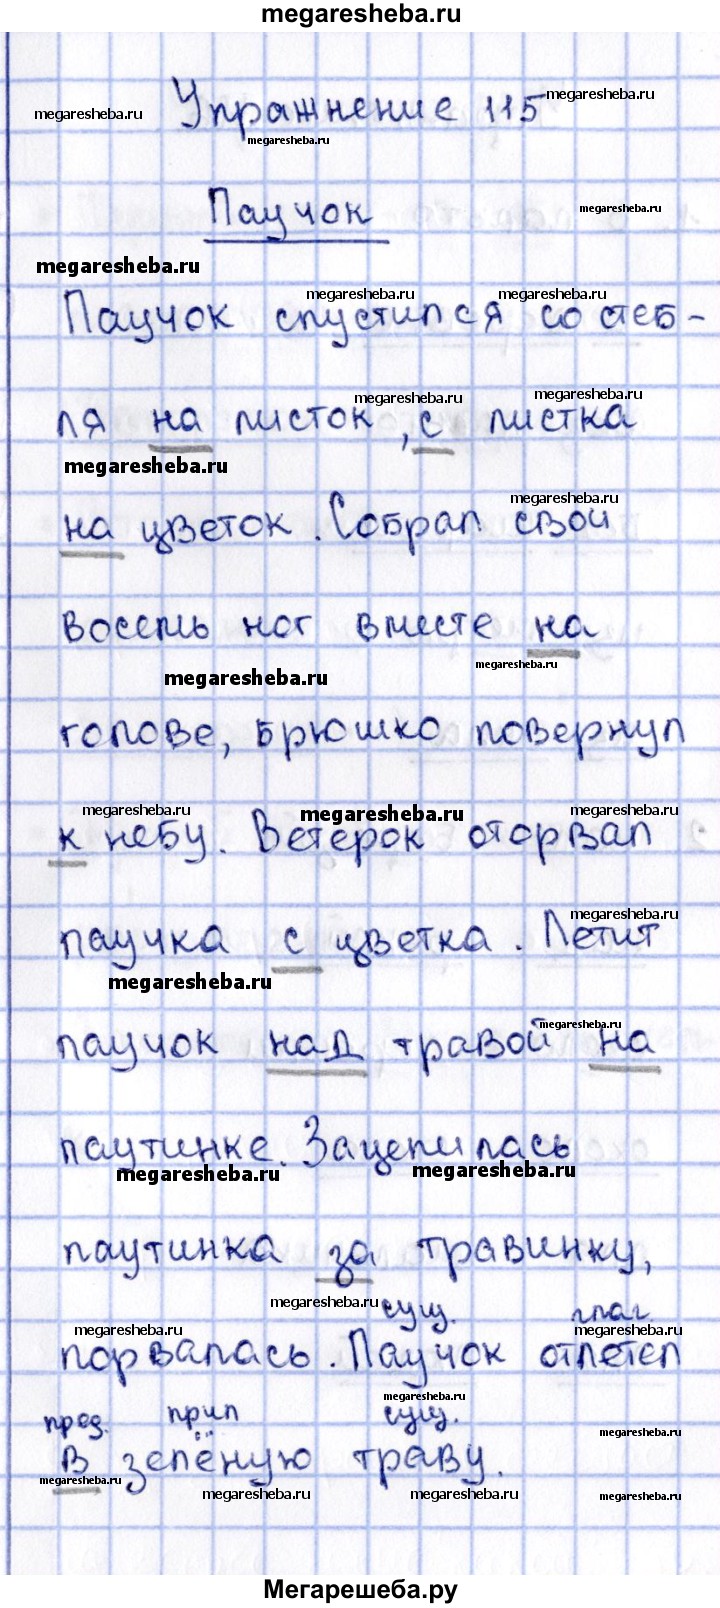 megaresheba.ru
megaresheba.ru
Упражнение 115
megaresheba.ru
megaresheba.ru
Паучок
megaresheba.ru
megaresheba.ru
megaresheba.ru
Паучок спустился со стеб-
megaresheba.ru
megaresheba.ru
ля на листок, с листка
megaresheba.ru
megaresheba.ru
на цветок. Собрал свои
восемь ног вместе на
megaresheba.ru
megaresheba.ru
голове, брюшко повернул
megaresheba.ru
megaresheba.ru
megaresheba.ru
к небу. Ветерок оторвал
megaresheba.ru
паучка с цветка. Летит
megaresheba.ru
megaresheba.ru
паучок над травой на
паутинке. Зацепилась
megaresheba.ru
megaresheba.ru
паутинка за травинку,
megaresheba.ru
сущ. глаг.
megaresheba.ru
megaresheba.ru
порвалась. Паучок отлетел
megaresheba.ru
пред. прил сущ.
megaresheba.ru
В зелёную траву.
megaresheba.ru
megaresheba.ru
megaresheba.ru
megaresheba.ru
Мегарешеба.ру